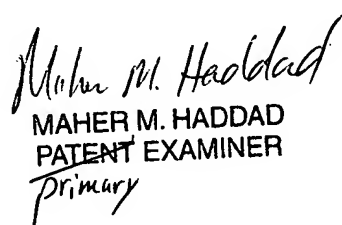 Maher M. Haddad
MAHER M. HADDAD
PATENT EXAMINER
primary